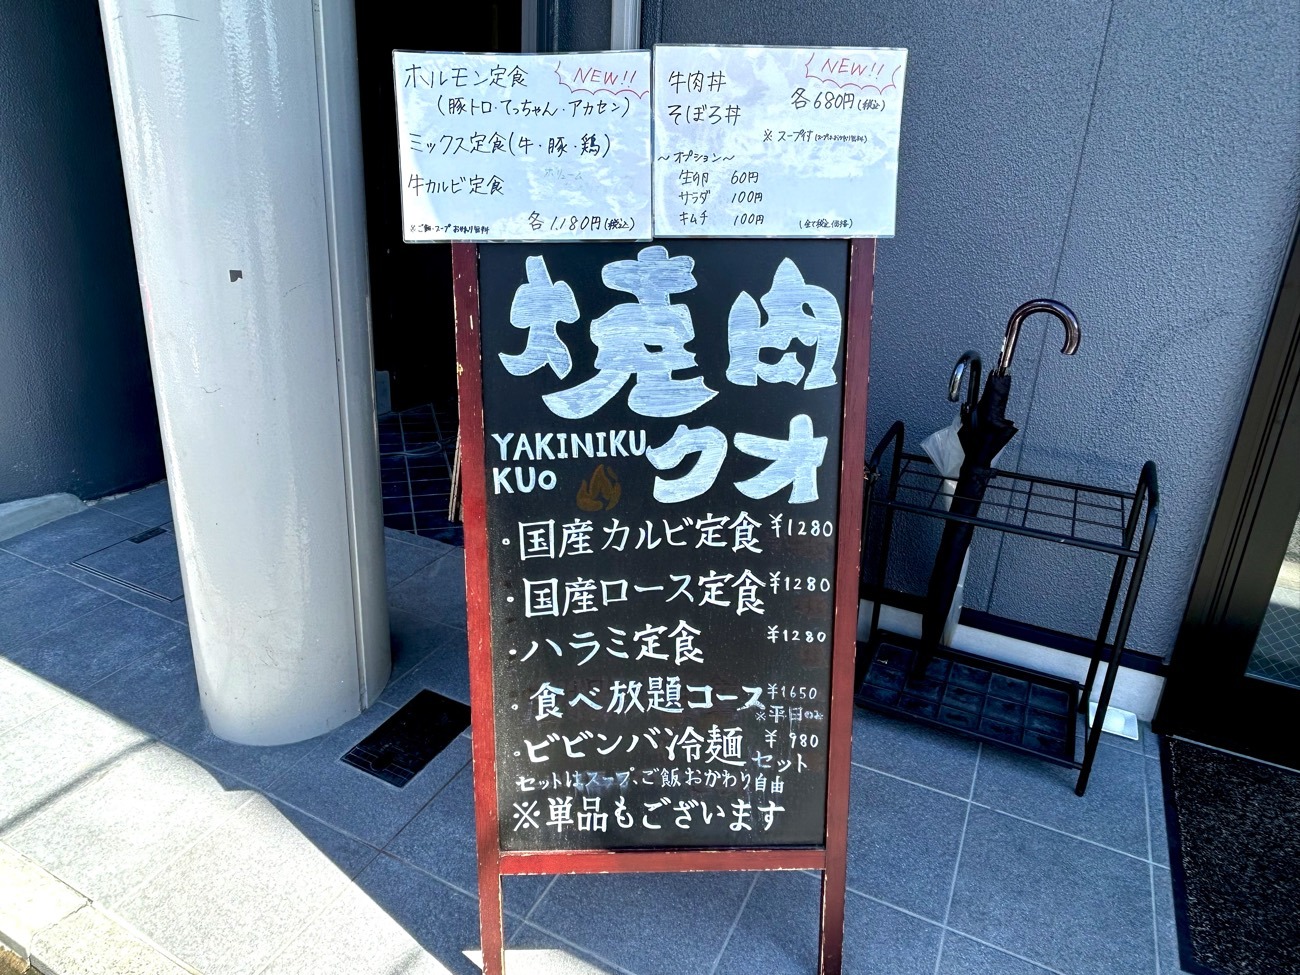 ホルモン定食 NEW!!
(豚トロ・てっちゃん・アカセン)
ミックス定食(牛・豚・鶏)
牛カルビ定食
各1,180円(税込)
※ご飯・スープ おかわり無料
牛肉丼 NEW!!
そぼろ丼 各680円(税込)
※スープ付(スープおかわり無料)
～オプション～
生卵 60円
サラダ 100円
キムチ 100円 (全て税込価格)
焼肉
クオ
YAKINIKU
KUo
・国産カルビ定食 ¥1280
・国産ロース定食 ¥1280
・ハラミ定食 ¥1280
・食べ放題コース ¥1650
※平日のみ
・ビビンバ冷麺セット ¥980
セットはスープ、ご飯おかわり自由
※単品もございます